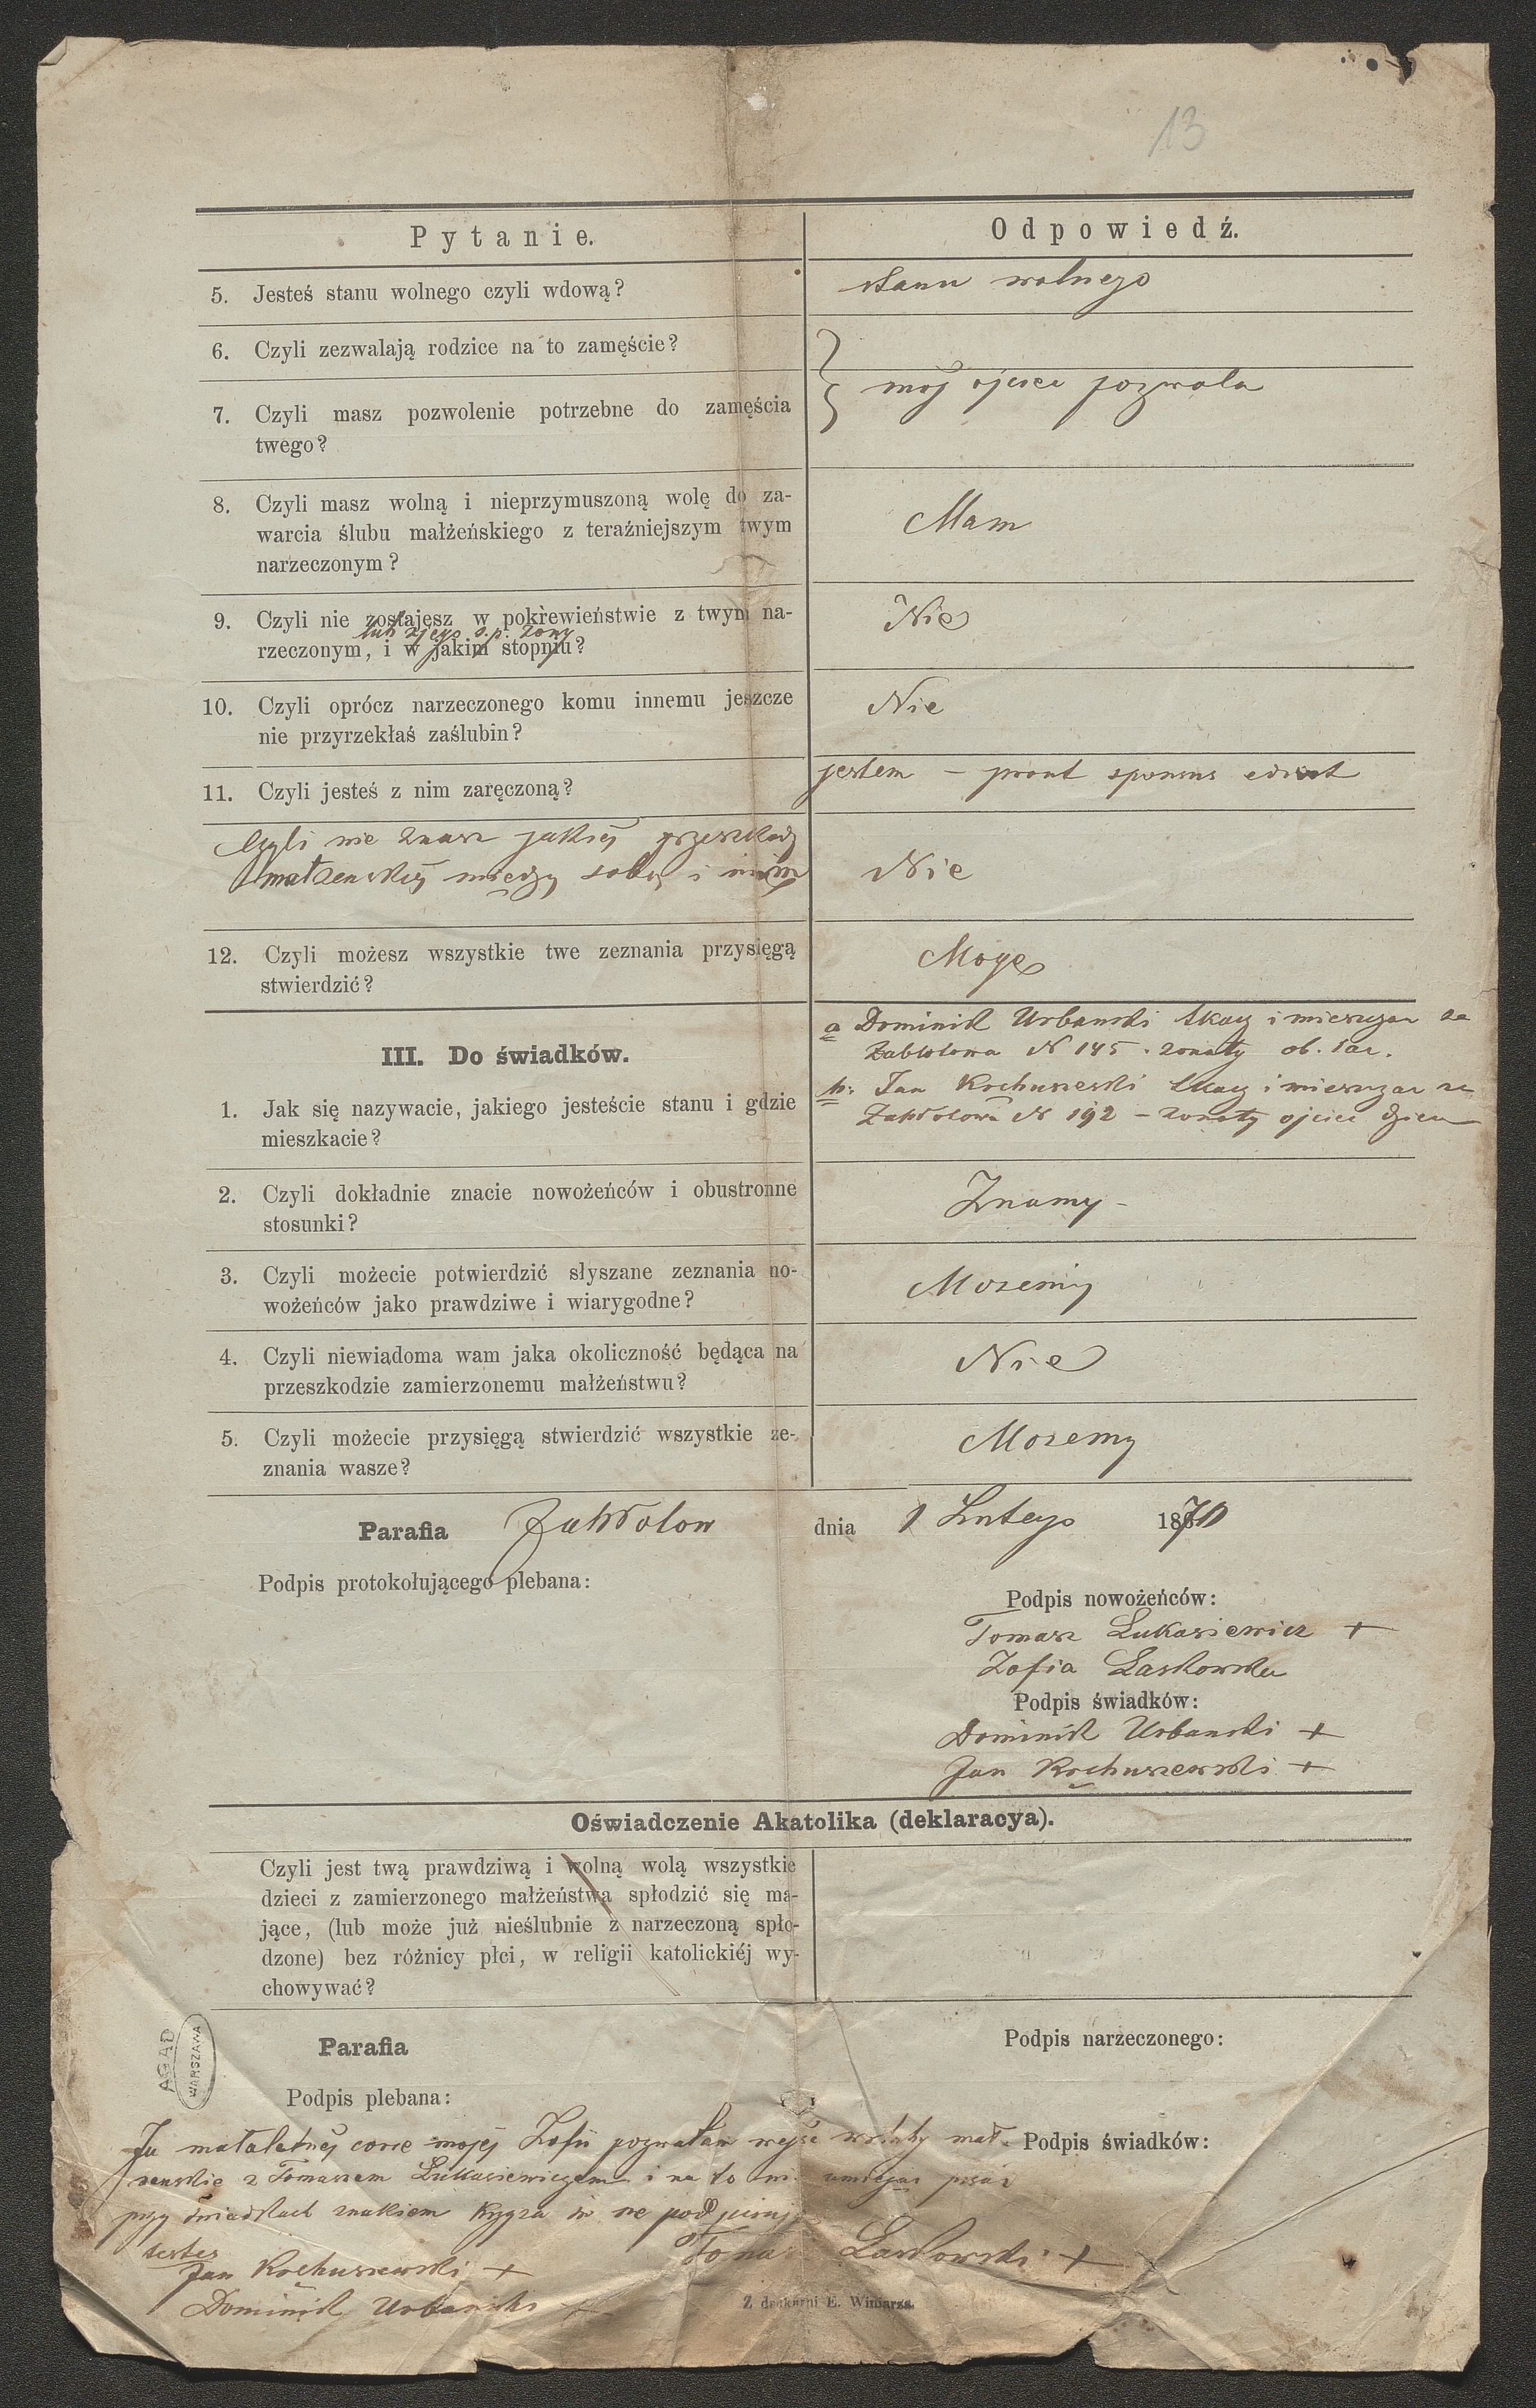 13
Pytanie.
Odpowiedź.
5. Jesteś stanu wolnego czyli wdową?
stanu wolnego
6. Czyli zezwalają rodzice na to zamęście?
7. Czyli masz pozwolenie potrzebne do zamęścia
twego?
mój ojciec pozwala
8. Czyli masz wolną i nieprzymuszoną wolę do za-
warcia ślubu małżeńskiego z teraźniejszym twym
narzeczonym?
Mam
9. Czyli nie zostajesz w pokrewieństwie z twym na-
lub z jego s.p. żony
rzeczonym, i w jakim stopniu?
Nie
10. Czyli oprócz narzeczonego komu innemu jeszcze
nie przyrzekłaś zaślubin?
Nie
11. Czyli jesteś z nim zaręczoną?
jestem – prout sponsus
Czyli nie znasz jakiej przeszkody
małżenskiej między sobą i nim
Nie
12. Czyli możesz wszystkie twe zeznania przysięgą
stwierdzić?
Mogę
III. Do świadków.
1. Jak się nazywacie, jakiego jesteście stanu i gdzie
mieszkacie?
a Dominik Urbanski tkacz i mieszczan
Zablotowa N 145. zonaty ob. łac.
b. Jan Kochuszewski tkacz i mieszczan
Zabłotowa N 192 – zonaty ojciec
2. Czyli dokładnie znacie nowożeńców i obustronne
stosunki?
Znamy –
3. Czyli możecie potwierdzić słyszane zeznania no-
wożeńców jako prawdziwe i wiarygodne?
Mozemy
4. Czyli niewiadoma wam jaka okoliczność będąca na
przeszkodzie zamierzonemu małżeństwu?
Nie
5. Czyli możecie przysięgą stwierdzić wszystkie ze-
znania wasze?
Mozemy
Parafia Zabłotow dnia 1 Lutego 1870
Podpis protokołującego plebana:
Podpis nowożeńców:
Tomasz Łukasiewicz +
Zofia Laskowska
Podpis świadków:
Dominik Urbanski +
Jan Kochuszewski +
Oświadczenie Akatolika (deklaracya).
Czyli jest twą prawdziwą i wolną wolą wszystkie
dzieci z zamierzonego małżeństwa spłodzić się ma-
jące, (lub może już nieślubnie z narzeczoną spło-
dzone) bez różnicy płci, w religii katolickiéj wy-
chowywać?
AGAD
WARSZAWA
Parafia
Podpis narzeczonego:
Podpis plebana:
Ja małaletnej corce mojej Zofii pozwalam wejść w śluby mał-
Podpis świadków:
zenskie z Tomaszem Łukasiewiczem i na to nie umiejąc pisać
przy świadkach znakiem krzyza
testes
Jan Kochuszewski +
Laskowski +
Dominik Urbanski +
Z drukarni E. Winiarza.